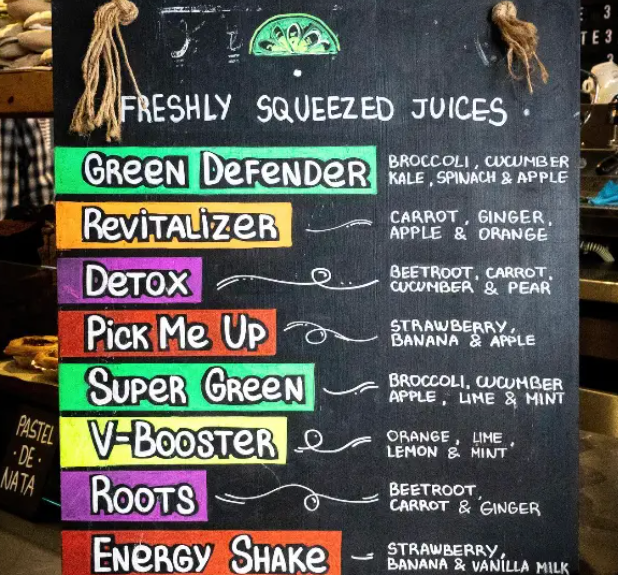 FRESHLY SQUEEZED JUICES
GREEN DEFENDER
BROCCOLI, CUCUMBER
KALE, SPINACH & APPLE
REVITALIZER
CARROT, GINGER,
APPLE & ORANGE
DETOX
BEETROOT, CARROT,
CUCUMBER & PEAR
PICK ME UP
STRAWBERRY,
BANANA & APPLE
SUPER GREEN
BROCCOLI, CUCUMBER
APPLE, LIME & MINT
V-BOOSTER
ORANGE, LIME,
LEMON & MINT
ROOTS
BEETROOT,
CARROT & GINGER
ENERGY SHAKE
STRAWBERRY,
BANANA & VANILLA MILK
PASTEL
· DE ·
NATA